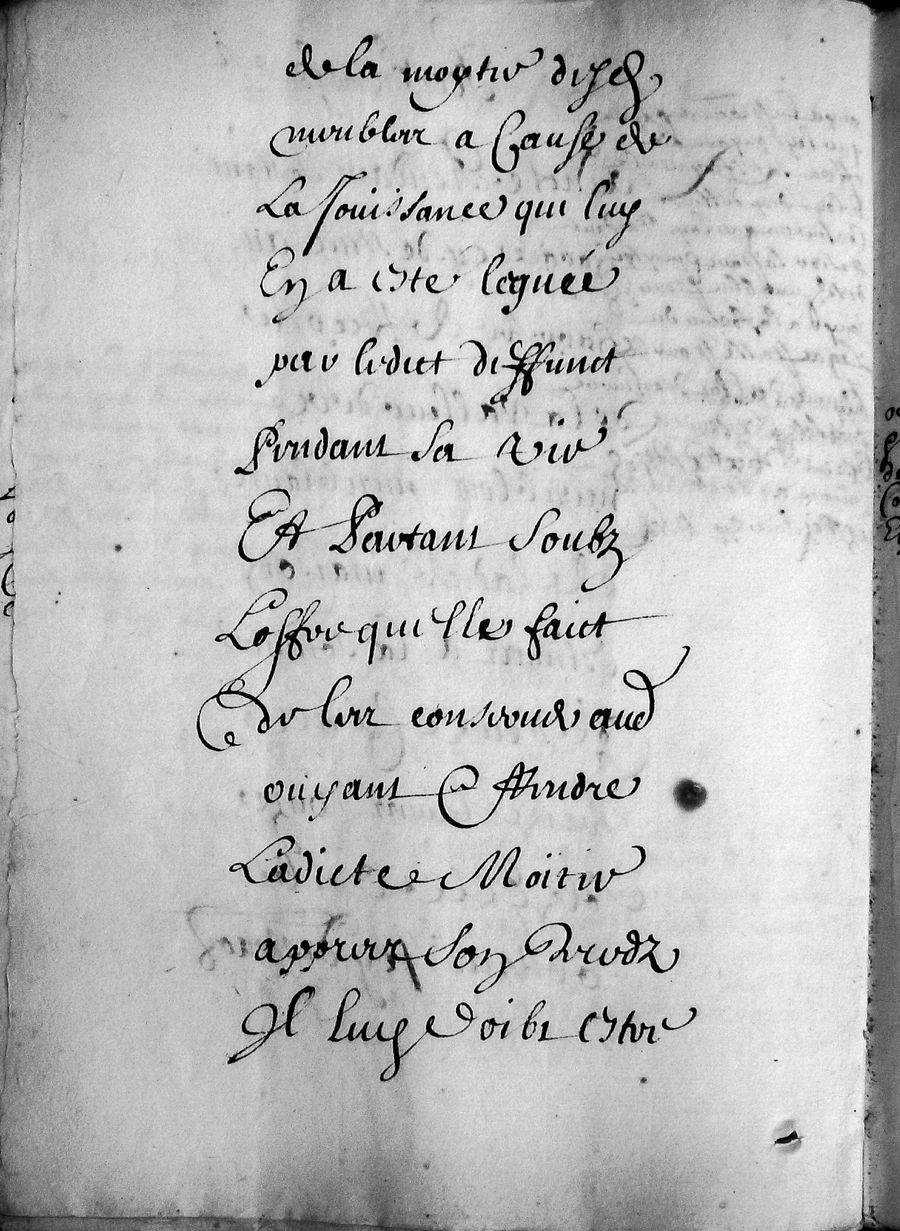 de la moytie desd
meubles a Cause de
La Jouissance qui luy
En a este leguée
par ledict deffunct
Pendant sa vie
Et Partant Soubz
Loffre quelle faict
de les conserver aud
oyant Et Rendre
Ladicte Moitie
apprez son deceds
Il luy doibt estre